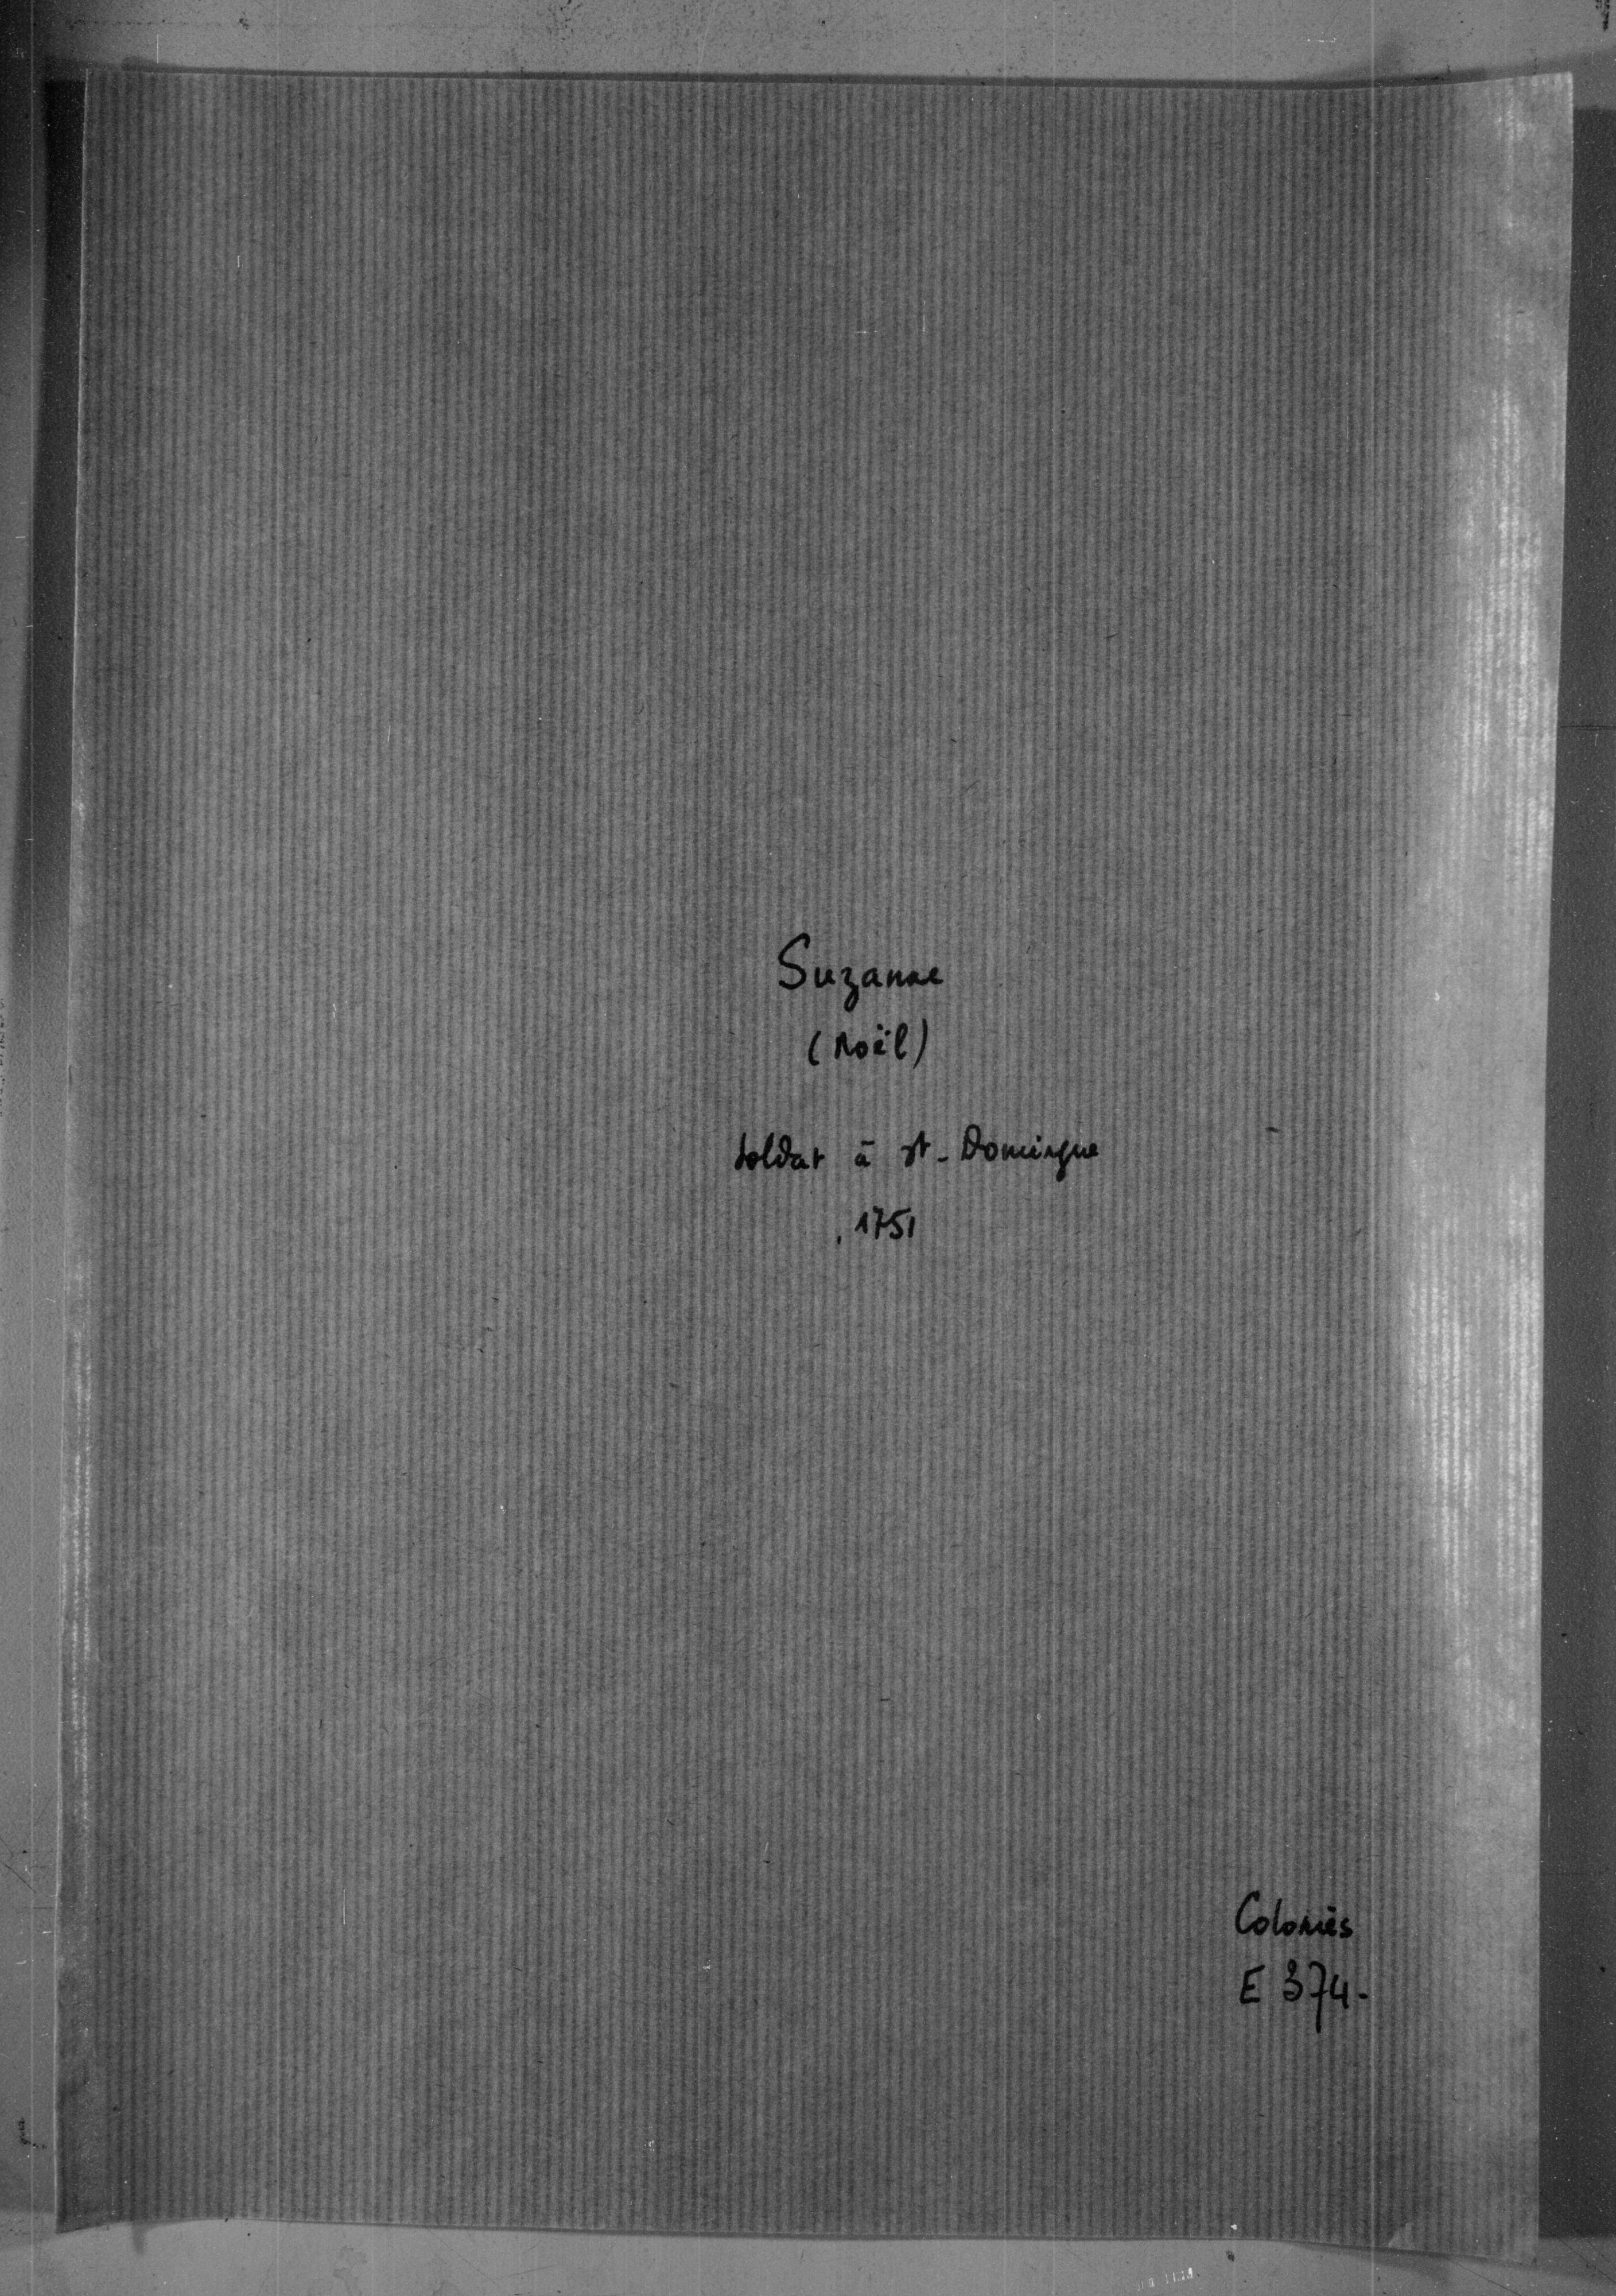 Suzanne
(Noël)
soldat à St-Domingue
1751
Colonies
E 374-